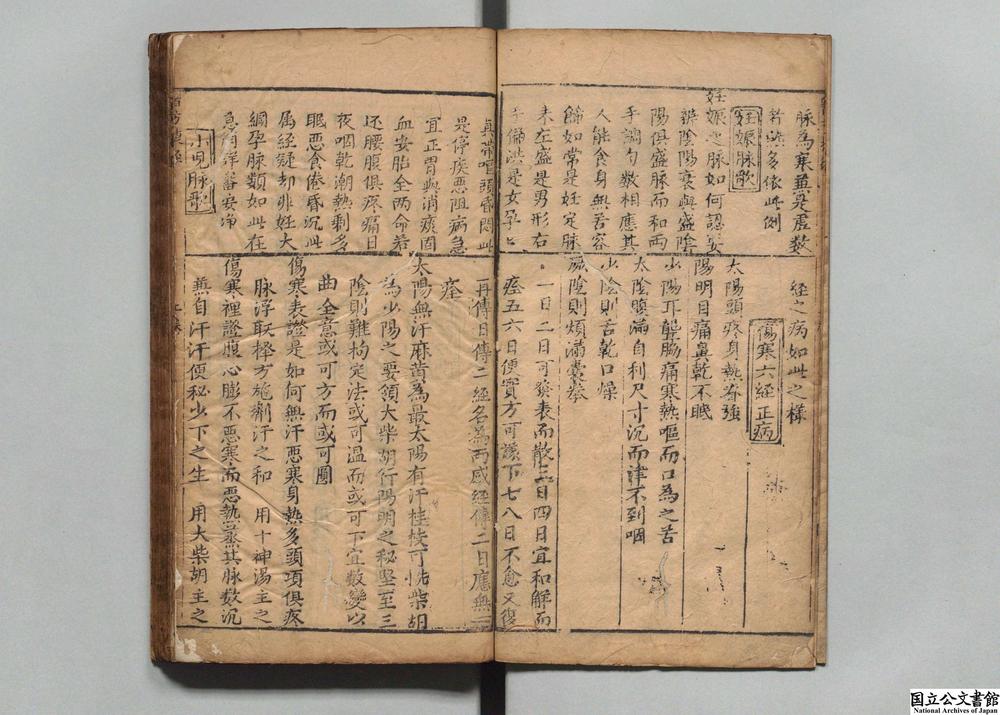 脉為寒無是虛数
熱多依此例
妊娠脉歌
妊娠之脉如何認安
辨陰陽衰與盛陰
陽俱盛脉而和两
手調匀数相應其
人能食身無苦容
餙如常是妊定脉
来左盛是男形右
手偏洪是女孕
经之病如此之樣
傷寒六经正病
太陽頭疼身熱脊強
陽明目痛鼻乾不眠
少陽耳聾脇痛寒熱嘔而口為之苦
太陰腹滿自利尺寸沉而津不到咽
少陰則舌乾口燥
厥陰則煩滿囊拳
一日二日可發表而散三日四日宜和解而
痊五六日便實方可議下七八日不愈又復
頭昏悶此
是停疾悪阻病急
宜正胃與消痰固
血安胎全两命若
还腰腹俱疼痛日
夜咽乾潮熱剩多
眠恶食倦昏沉此
属経疑却非妊大
綱孕脉類如此在
急消詳審安净
小児脉歌
再傳日傳二經名為两感經傳二日應無一
痊
太陽無汗麻黄為最太陽有汗桂枝可先柴胡
為少陽之要領大柴胡行陽明之秘堅至三
陰則難拘定法或可温而或可下宜数變以
曲全意或可方而或可圓
傷寒表證是如何無汗恶寒身熱多頭項俱疼
脉浮取擇方施劑汗之和 用十神湯主之
傷寒裡證腹心膨不恶寒而恶執蒸其脉数沉
無自汗汗便秘少下之生 用大柴胡主之
国立公文書館
National Archives of Japan